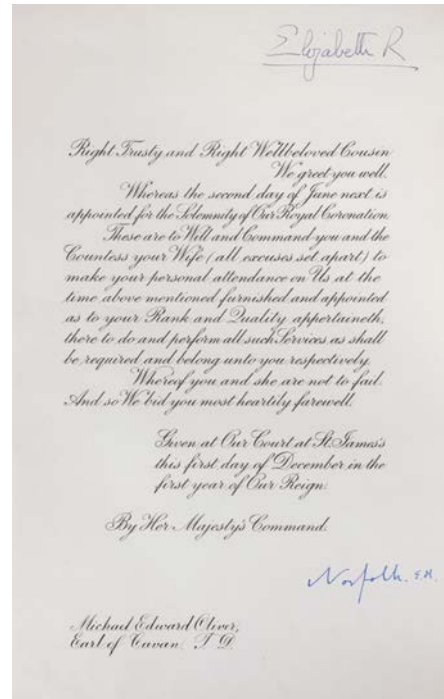 Elizabeth R
Right Trusty and Right Wellbeloved Cousin
We greet you well.
Whereas the second day of June next is
appointed for the Solemnity of Our Royal Coronation.
These are to Will and Command you and the
Countess your Wife (all excuses set apart) to
make your personal attendance on Us at the
time above mentioned furnished and appointed
as to your Rank and Quality appertaineth,
there to do and perform all such Services as shall
be required and belong unto you respectively.
Whereof you and she are not to fail.
And so We bid you most heartily farewell.
Given at Our Court at St. James's
this first day of December in the
first year of Our Reign.
By Her Majesty's Command.
Norfolk. E.M.
Michael Edward Oliver,
Earl of Cavan. T. D.